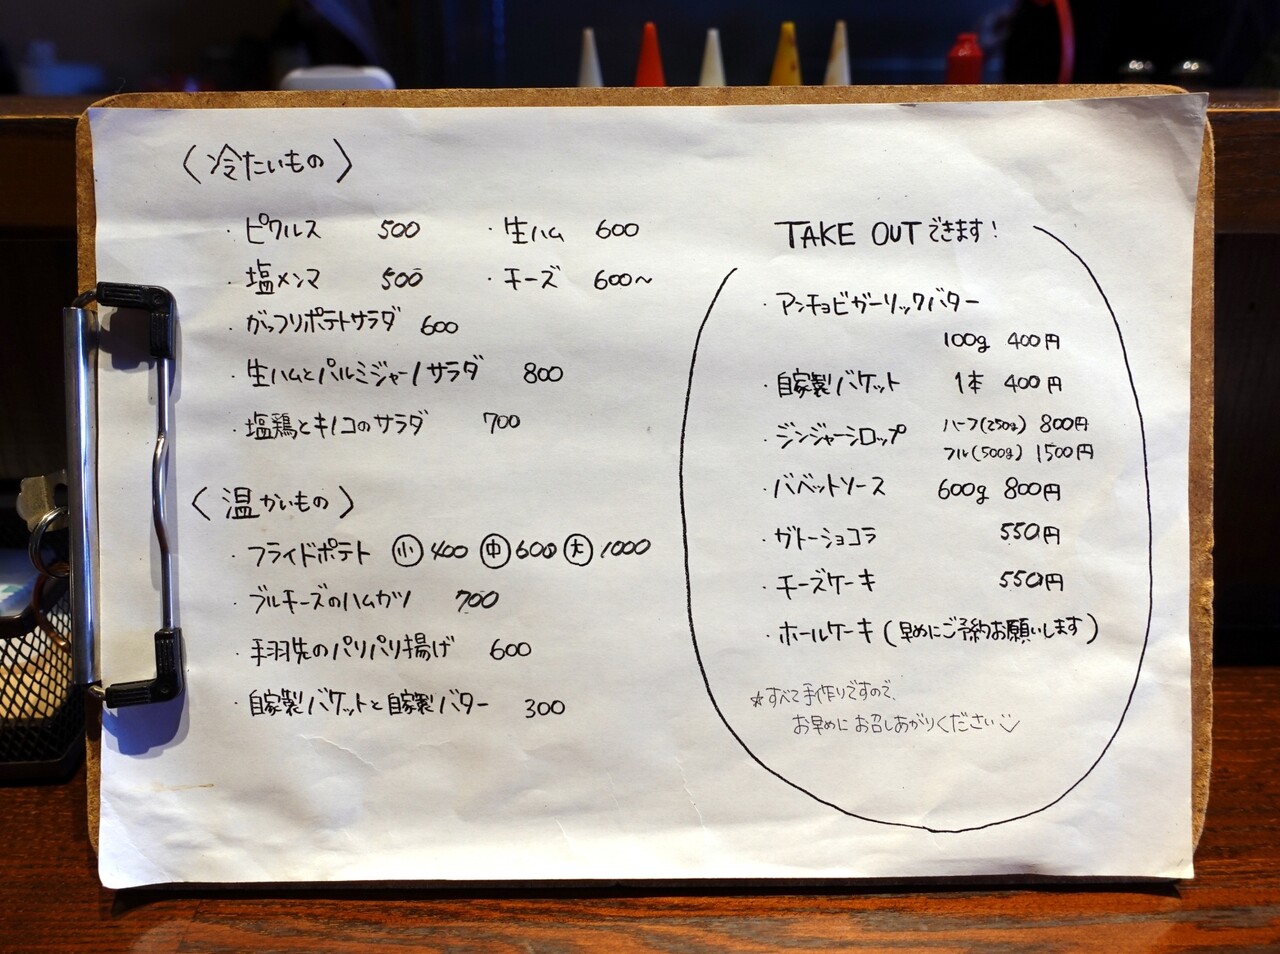 〈冷たいもの〉
・ピクルス 500 ・生ハム 600
・塩メンマ 500 ・チーズ 600〜
・がっつりポテトサラダ 600
・生ハムとパルミジャーノサラダ 800
・塩鶏とキノコのサラダ 700
〈温かいもの〉
・フライドポテト 小 400 中 600 大 1000
・ブルーチーズのハムカツ 700
・手羽先のパリパリ揚げ 600
・自家製バケットと自家製バター 300
TAKE OUTできます!
・アンチョビガーリックバター
100g 400円
・自家製バケット 1本 400円
・ジンジャーシロップ ハーフ(250g) 800円
フル(500g) 1500円
・バベットソース 600g 800円
・ガトーショコラ 550円
・チーズケーキ 550円
・ホールケーキ(早めにご予約お願いします)
☆すべて手作りですので、
お早めにお召しあがりください